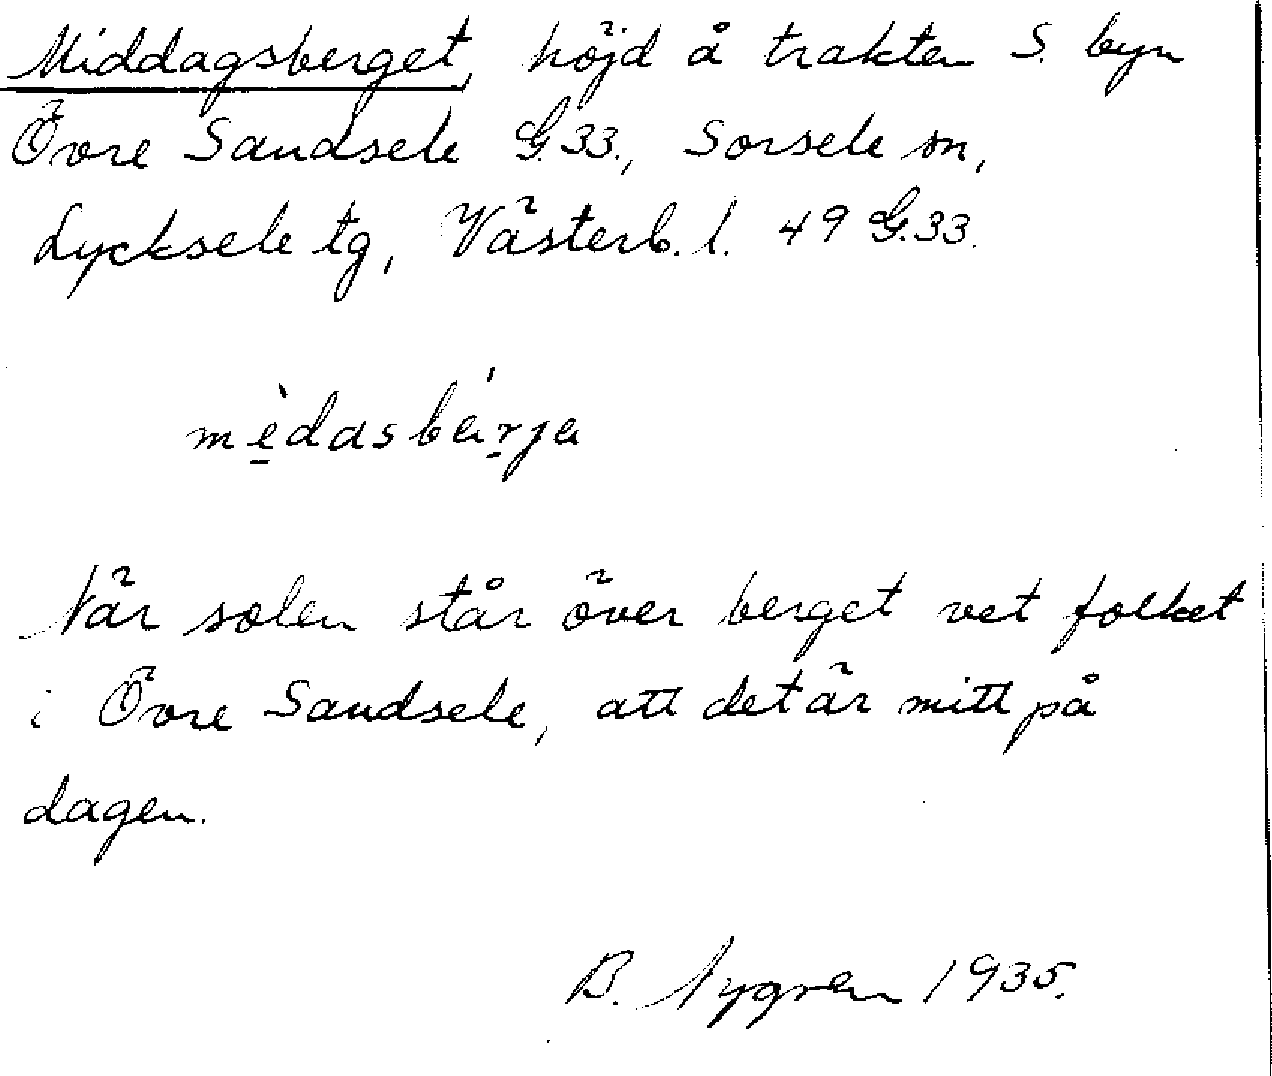 Middagsberget, höjd å trakten S. byn
Övre Sandsele G.33., Sorsele sn,
Lycksele tg, Västerb. l. 49 G.33.
mèdasbárja
När solen står över berget vet folket
i Övre Sandsele, att det är mitt på
dagen.
B. Nygren 1935.